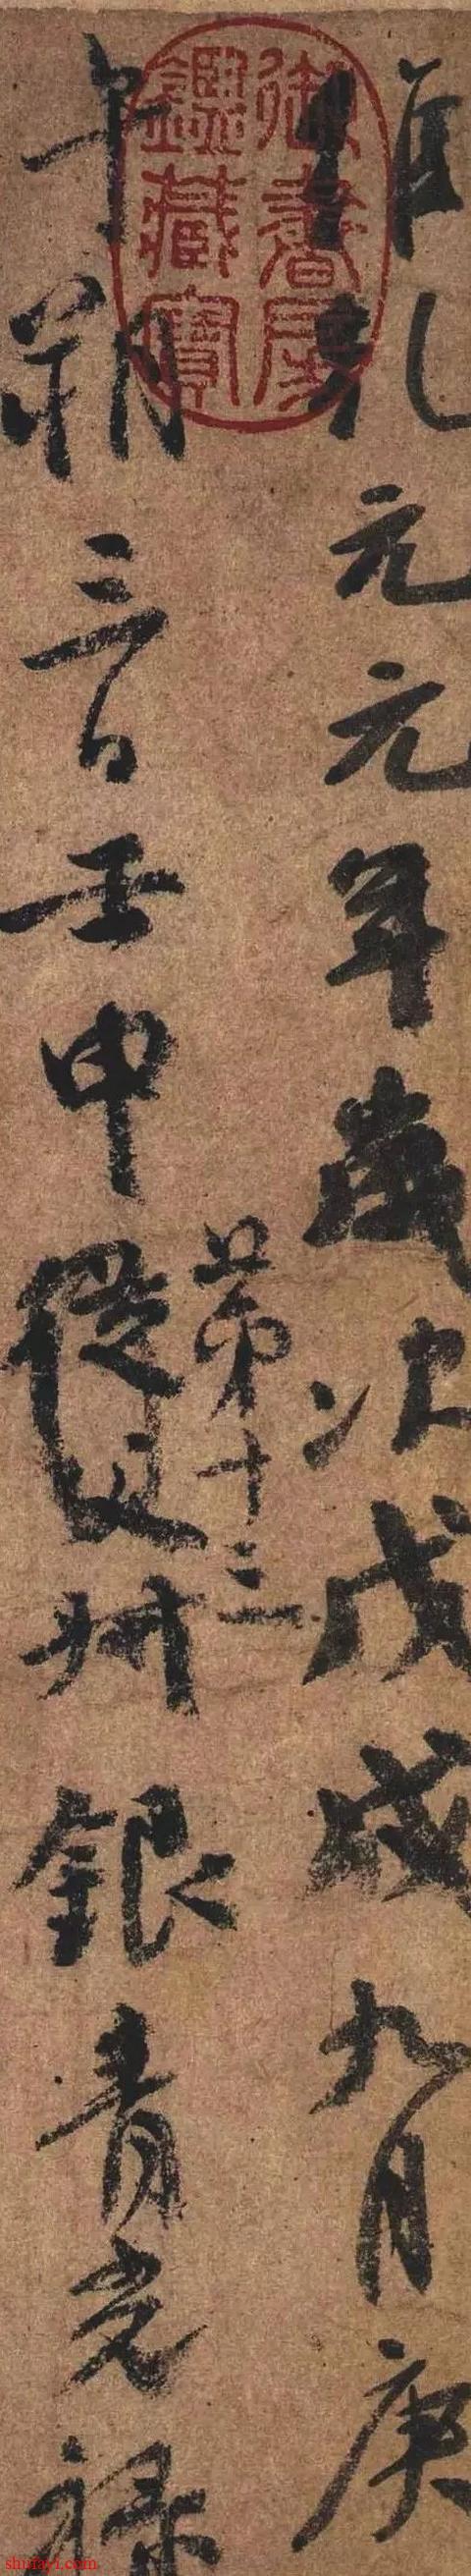 維乾元元年歲次戊戌九月庚
第十三
午朔三日壬申從父叔銀青光祿
御書房
鑑藏寶
shufayi.com